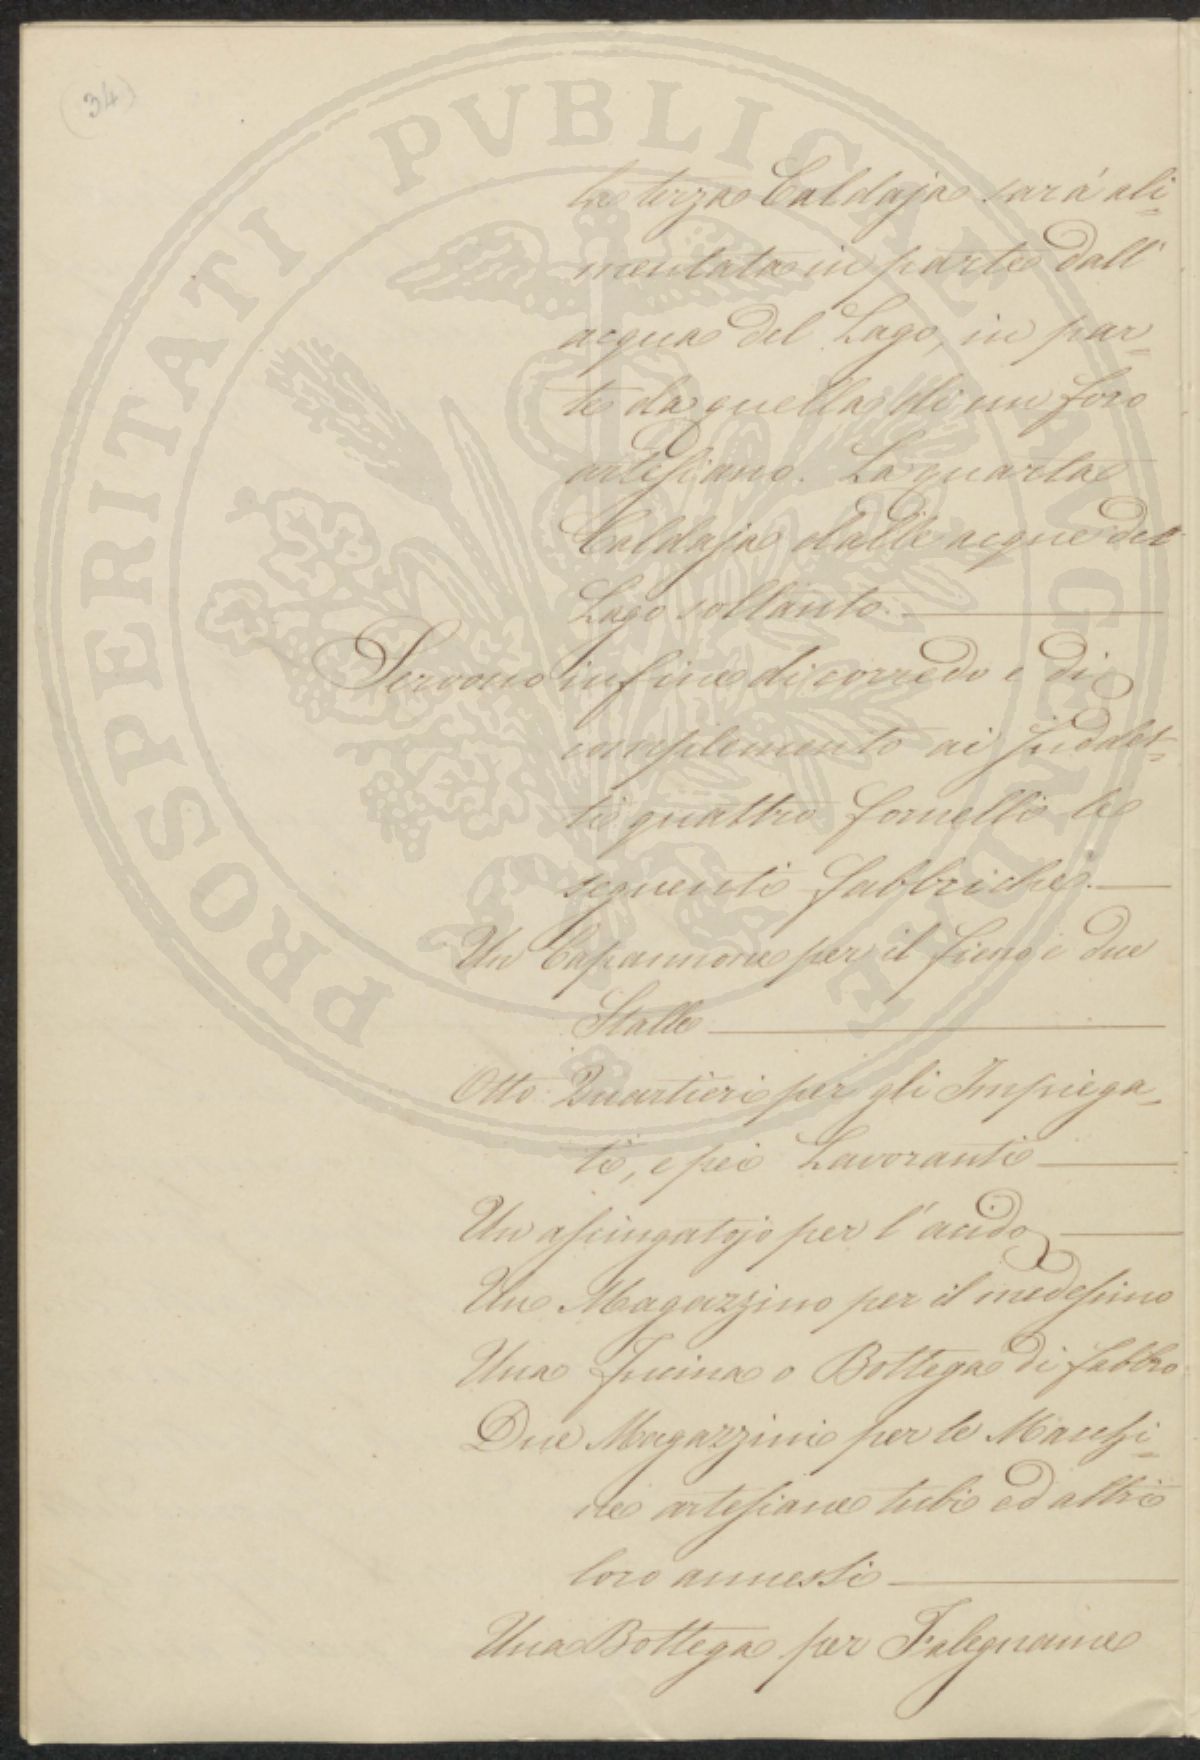 (34)
PROSPERITATI PVBLICAE AVGENDAE
la terza Caldaja sará ali=
mentata in parte dall'
acqua del Lago, in par=
te da quella di un foro
artesiano. La quarta
Caldaja dalle acque del
Lago soltanto.
Servono infine di corredo e di
complemento ai suddet=
ti quattro fornelli le
seguenti fabbriche.
Un Capannone per il fieno e due
Stalle
Otto Quartieri per gli Impiega=
ti, e pei Lavoranti
Un asciugatojo per l'acido
Un Magazzino per il medesimo
Una Fucina o Bottega di fabbro
Due Magazzini per le Macchi=
ne artesiane tubi ed altri
loro annessi
Una Bottega per Falegname